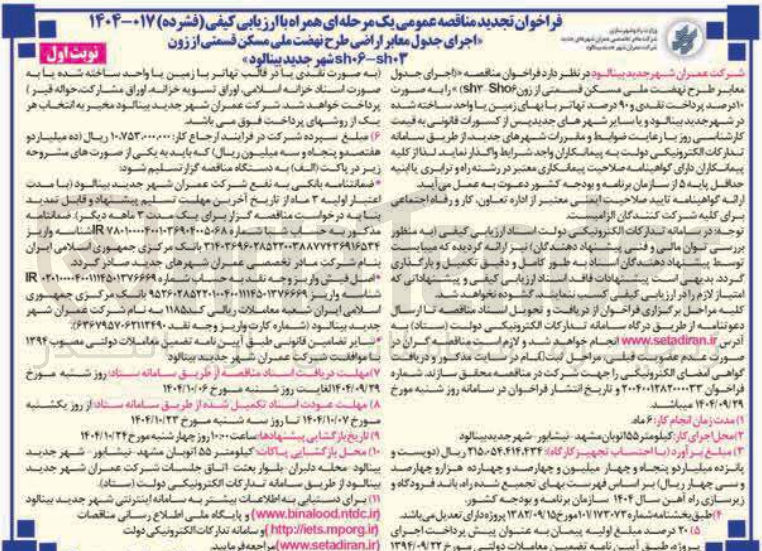 فراخوان تجدید مناقصه عمومی یک مرحله‌ای همراه با ارزیابی کیفی (فشرده) ۰۱۷-۱۴۰۴
«اجرای جدول معابر اراضی طرح نهضت ملی مسکن قسمتی از زون
sh۰۶-sh۰۳ شهر جدید بینالود»
نوبت اول
وزارت راه و شهرسازی
شرکت عمران شهر جدید بینالود
شرکت عمران شهر جدید بینالود در نظر دارد فراخوان مناقصه «(اجرای جدول
معابر طرح نهضت ملی مسکن قسمتی از زون sh۳-Sh۰۶)» را به صورت
۱۰درصد پرداخت نقدی و ۹۰ درصد تهاتر با بهای زمین یا واحد ساخته شده
در شهر جدید بینالود و یا سایر شهر های جدید پس از کسورات قانونی به قیمت
کارشناسی روز با رعایت ضوابط و مقررات شهرهای جدید از طریق سامانه
تدارکات الکترونیکی دولت به پیمانکاران واجد شرایط واگذار نماید لذا از کلیه
پیمانکاران دارای گواهینامه صلاحیت پیمانکاری معتبر در رشته راه و ترابری یا ابنیه
حداقل پایه ۵ از سازمان برنامه و بودجه کشور دعوت به عمل می‌آید.
ارائه گواهینامه تایید صلاحیت ایمنی معتبر از اداره تعاون، کار و رفاه اجتماعی
برای کلیه شرکت کنندگان الزامیست.
توجه: در سامانه تدارکات الکترونیکی دولت اسناد ارزیابی کیفی (به منظور
بررسی توان مالی و فنی پیشنهاد دهندگان) نیز ارائه گردیده که میبایست
توسط پیشنهاد دهندگان اسناد به طور کامل و دقیق تکمیل و بارگذاری
گردد. بدیهی است پیشنهادات فاقد اسناد ارزیابی کیفی و پیشنهاداتی که
امتیاز لازم را در ارزیابی کیفی کسب ننمایند، گشوده نخواهد شد.
کلیه مراحل برگزاری فراخوان از دریافت و تحویل اسناد مناقصه تا ارسال
دعوتنامه از طریق درگاه سامانه تدارکات الکترونیکی دولت (ستاد) به
آدرس www.setadiran.ir انجام خواهد شد و لازم است مناقصه گران در
صورت عدم عضویت قبلی، مراحل ثبت نام در سایت مذکور و دریافت
گواهی امضای الکترونیکی را جهت شرکت در مناقصه محقق سازند. شماره
فراخوان ۲۰۰۴۰۰۱۲۸۲۰۰۰۰۳۳ و تاریخ انتشار فراخوان در سامانه روز شنبه مورخ
۱۴۰۴/۰۹/۲۹ میباشد.
۱) مدت زمان انجام کار: ۶ ماه.
۲) محل اجرای کار: کیلومتر ۵۵ اتوبان مشهد - نیشابور - شهر جدید بینالود
۳) مبلغ برآورد (با احتساب تجهیز کارگاه): ۲۱۵،۰۵۴،۴۱۴،۴۳۴ ریال (دویست و
پانزده میلیارد و پنجاه و چهار میلیون و چهارصد و چهارده هزار و چهارصد
و سی چهار ریال) بر اساس فهرست بهای تجمیع شده راه، باند فرودگاه و
زیرسازی راه آهن سال ۱۴۰۴ سازمان برنامه و بودجه کشور.
۴) طبق بخشنامه شماره ۱۰۷۱۷۳۰۷۳ مورخ ۱۳۸۲/۰۹/۱۵ پروژه دارای تعدیل می‌باشد.
۵) ۲۰ درصد مبلغ اولیه پیمان به عنوان پیش پرداخت اجرای
پروژه طبق آیین نامه تضمین معاملات دولتی مورخ ۱۳۹۴/۰۹/۲۲
(به صورت نقدی یا در قالب تهاتر با زمین یا واحد ساخته شده یا به
صورت اسناد خزانه اسلامی، اوراق تسویه خزانه، اوراق مشارکت، حواله قیر)
پرداخت خواهد شد. شرکت عمران شهر جدید بینالود مخیر به انتخاب هر
یک از روشهای پرداخت فوق می باشد.
۶) مبلغ سپرده شرکت در فرایند ارجاع کار: ۱۰،۷۵۳،۰۰۰،۰۰۰ ریال (ده میلیارد و
هفتصد و پنجاه و سه میلیون ریال) که باید به یکی از صورت های مشروحه
زیر در پاکت (الف) به دستگاه مناقصه گزار تسلیم شود:
*ضمانتنامه بانکی به نفع شرکت عمران شهر جدید بینالود (با مدت
اعتبار اولیه ۳ ماه از تاریخ آخرین مهلت تسلیم پیشنهاد و قابل تمدید
بنا به درخواست مناقصه گزار برای یک مدت ۳ ماهه دیگر). ضمانتنامه
مذکور به حساب شبا شماره
شناسه واریز
بانک مرکزی جمهوری اسلامی ایران
بنام شرکت مادر تخصصی عمران شهرهای جدید صادر گردد.
*اصل فیش واریز وجه نقد به حساب شماره
شناسه واریز
بانک مرکزی جمهوری
اسلامی ایران شعبه معاملات ریالی کد ۱۱۸۵ به نام شرکت عمران شهر
جدید بینالود (شماره کارت واریز وجه نقد ۶۳۶۷۹۵۷۰۶۲۱۱۲۴۹۰).
*سایر تضامین قانونی طبق آیین نامه تضمین معاملات دولتی مصوب ۱۳۹۴
با موافقت شرکت عمران شهر جدید بینالود
۷) مهلت دریافت اسناد مناقصه (از طریق سامانه ستاد): روز شنبه مورخ
۱۴۰۴/۰۹/۲۹ لغایت روز شنبه مورخ ۱۴۰۴/۱۰/۰۶
۸) مهلت عودت اسناد تکمیل شده از طریق سامانه ستاد: از روز یکشنبه
مورخ ۱۴۰۴/۱۰/۰۷ تا روز سه شنبه مورخ ۱۴۰۴/۱۰/۲۳
۹) تاریخ بازگشایی پیشنهادها: ساعت ۱۰:۰۰ روز چهار شنبه مورخ ۱۴۰۴/۱۰/۲۴
۱۰) محل بازگشایی پاکات: کیلومتر ۵۵ اتوبان مشهد - نیشابور - شهر جدید
بینالود - محله دلبران - بلوار بعثت - اتاق جلسات شرکت عمران شهر جدید
بینالود از طریق سامانه تدارکات الکترونیکی دولت (ستاد).
۱۱) برای دستیابی به اطلاعات بیشتر به سامانه اینترنتی شهر جدید بینالود
(www.binalood.ntdc.ir) و پایگاه ملی اطلاع رسانی مناقصات
(http://iets.mporg.ir) و سامانه تدارکات الکترونیکی دولت
(www.setadiran.ir) مراجعه فرمایید.